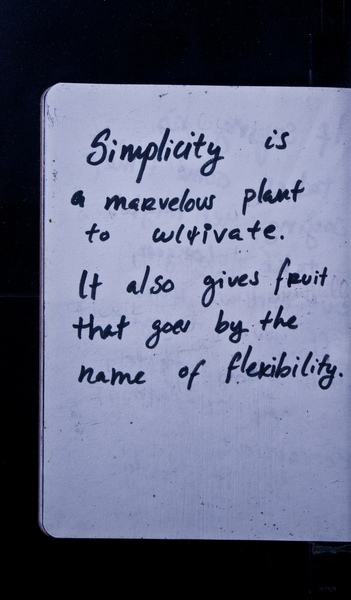 Simplicity is
a marvelous plant
to cultivate.
It also gives fruit
that goes by the
name of flexibility.